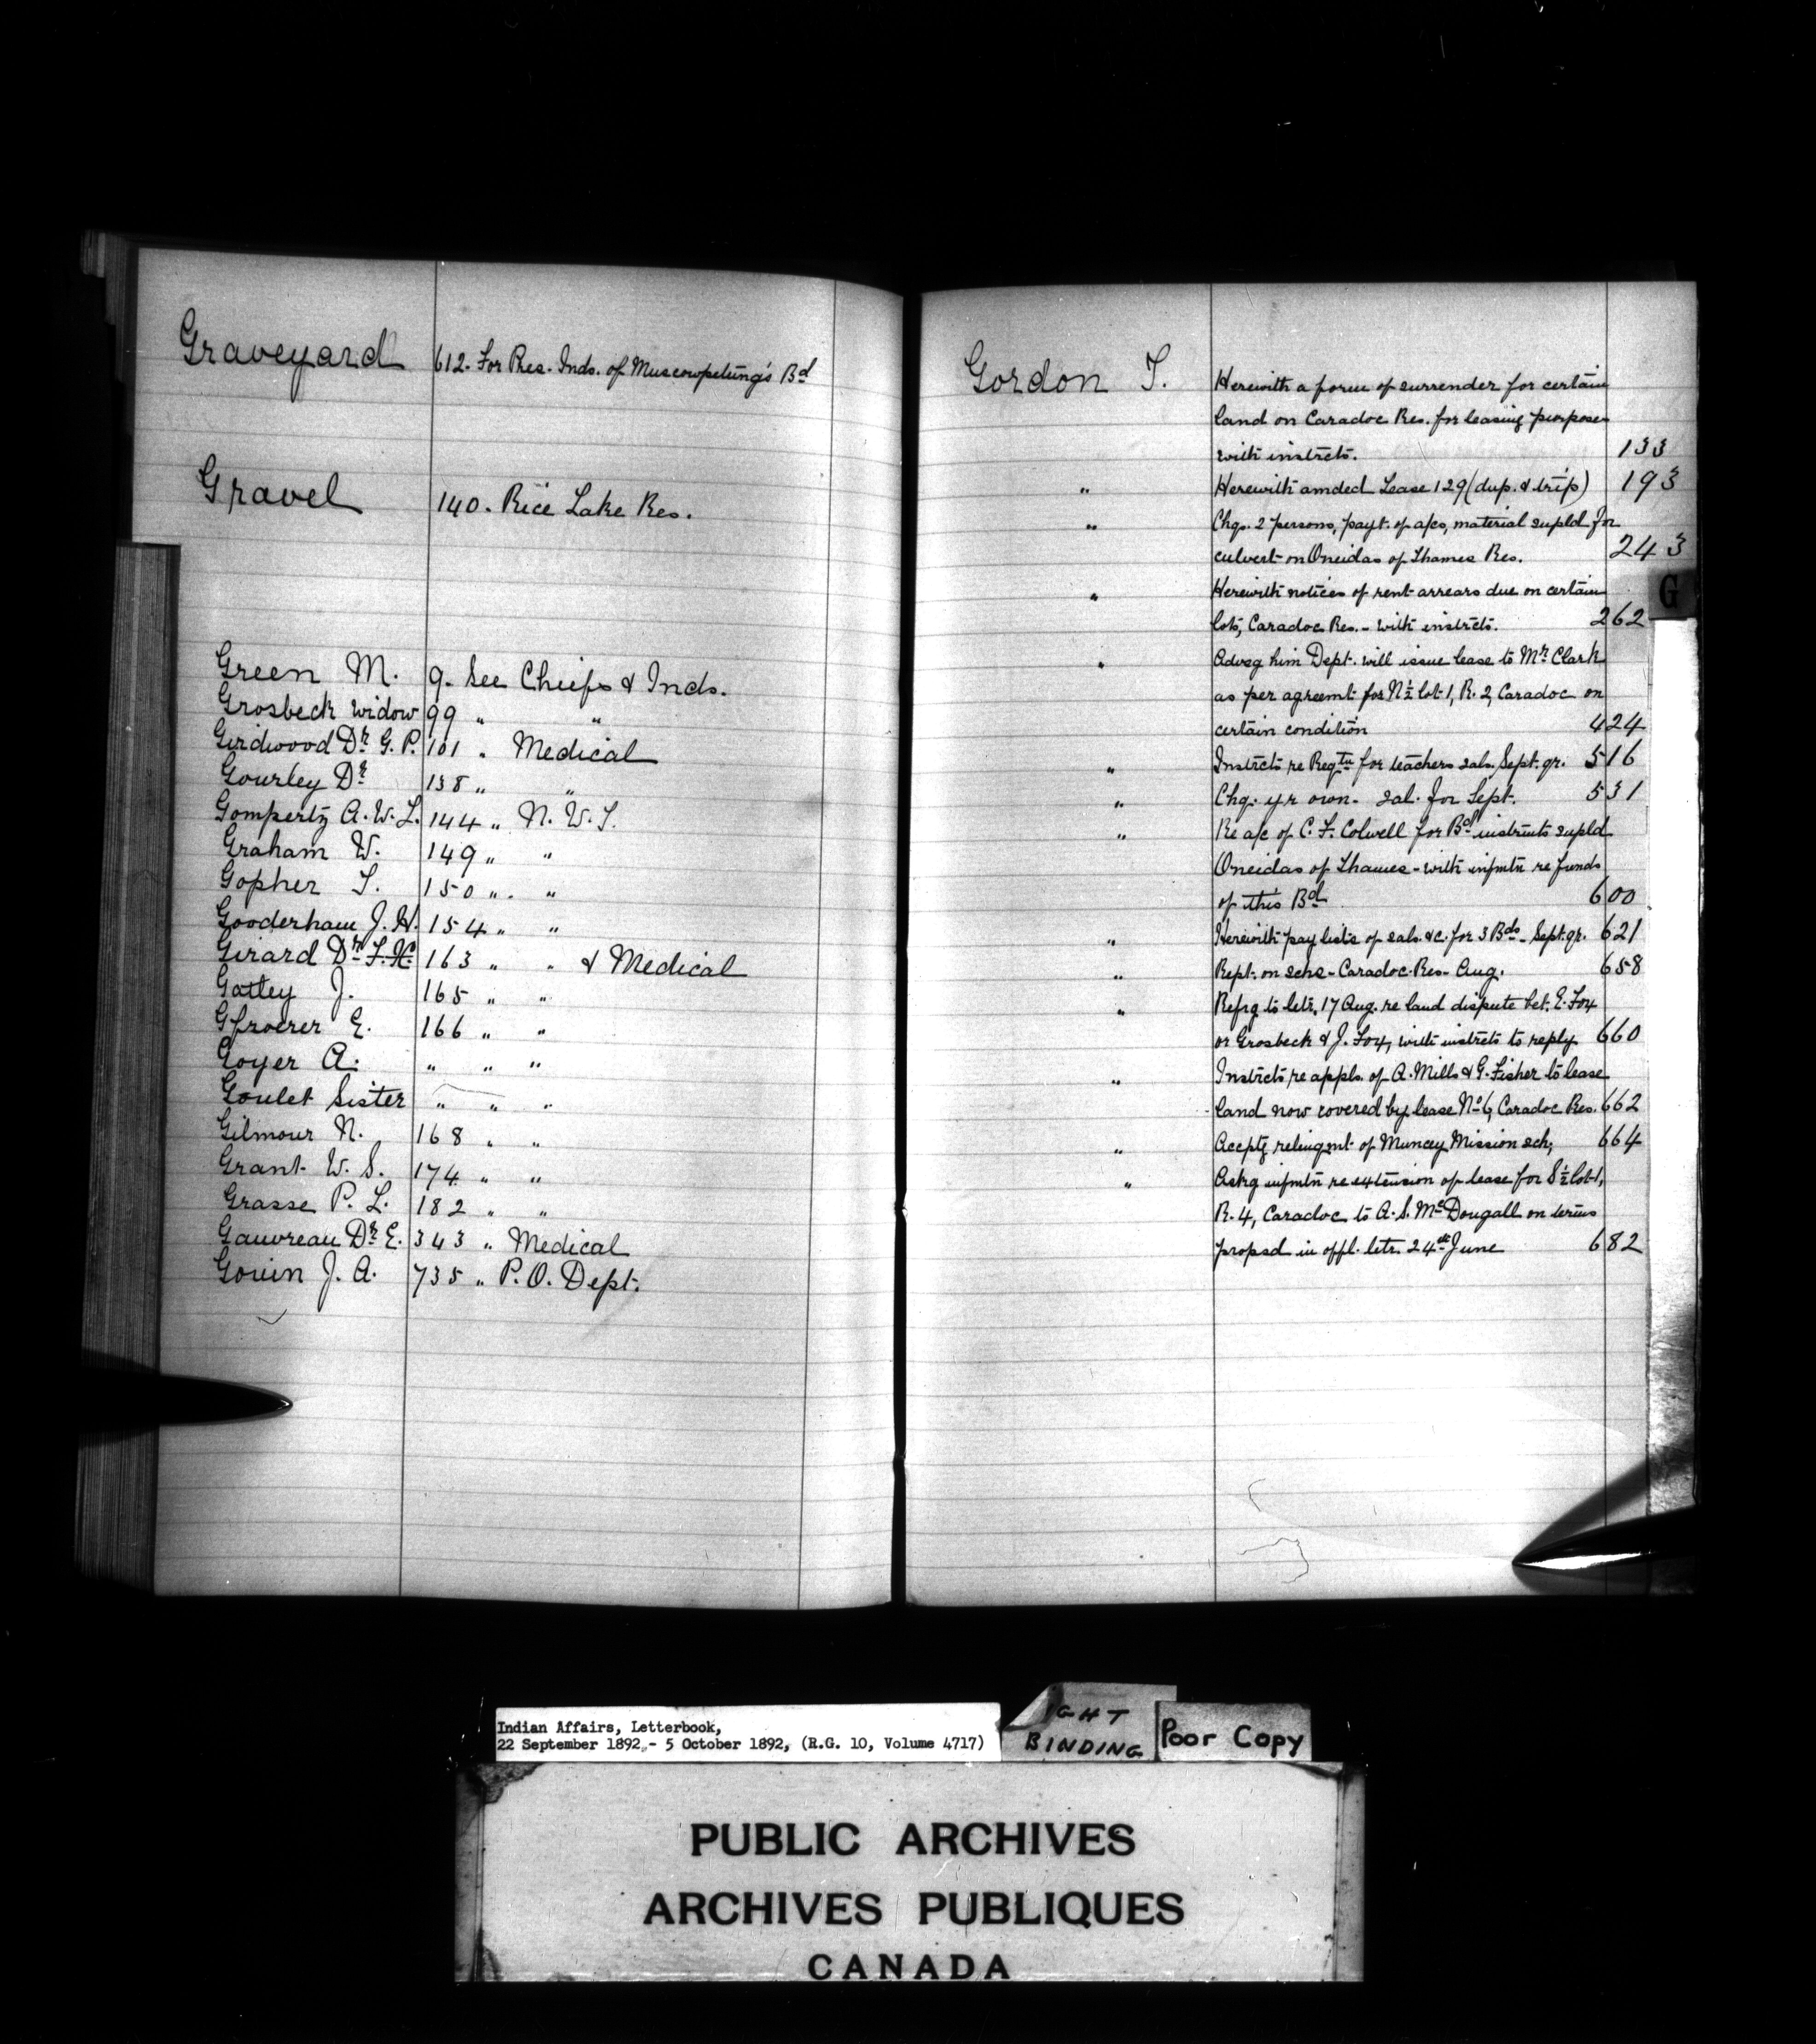 Graveyard 612. For Pres. Inds. of Muscowpetung's Bd
Gravel 140. Rice Lake Res.
Green M. 9. See Chiefs & Inds.
Grosbeck widow 99 " "
Girdwood Dr. G. P. 101 " Medical
Gourley Dr. 138 " "
Gompertz A. W. L. 144 " N. W. T.
Graham W. 149 " "
Gopher T. 150 " "
Gooderham J. H. 154 " "
Girard Dr. F. X. 163 " " & Medical
Gatley J. 165 " "
Gfroerer E. 166 " "
Goyer A. " " "
Goulet Sister " " "
Gilmour N. 168 " "
Grant W. S. 174 " "
Grasse P. L. 182 " "
Gauvreau Dr. E. 343 " Medical
Gouin J. A. 735 " P. O. Dept.
Gordon T. Herewith a form of surrender for certain
land on Caradoc Res. for leasing purposes
with instrcts. 133
" Herewith amded Lease 129 (dup. & trip) 193
" Chqs. 2 persons, payt. of a/cs, material supld for
culvert on Oneidas of Thames Res. 243
" Herewith notices of rent arrears due on certain
lots, Caradoc Res. - with instrcts. 262
" Advsg him Dept. will issue lease to Mr. Clark
as per agreemt for N½ lot 1, R. 2, Caradoc on
certain condition 424
" Instrcts re Reqtn for teachers sals. Sept. qr. 516
" Chq. yr own. sal. for Sept. 531
" Re a/c of C. F. Colwell for Bd instrmts supld
Oneidas of Thames - with infmtn re funds
of this Bd 600
" Herewith pay lists of sals. &c. for 3 Bds - Sept. qr. 621
" Rept. on schs - Caradoc Res - Aug. 658
" Refrg to letr. 17 Aug. re land dispute bet. E. Fox
or Grosbeck & J. Fox, with instrcts to reply 660
" Instrcts re appls. of A. Mills & G. Fisher to lease
land now covered by lease No 6, Caradoc Res. 662
" Acceptg relinqmt of Muncey Mission sch. 664
" Askg infmtn re extension of lease for S½ lot 1,
R. 4, Caradoc to A. S. McDougall on terms
propsd in offl. letr. 24th June 682
G
Indian Affairs, Letterbook,
22 September 1892 - 5 October 1892, (R.G. 10, Volume 4717)
IGHT
BINDING
Poor Copy
PUBLIC ARCHIVES
ARCHIVES PUBLIQUES
CANADA